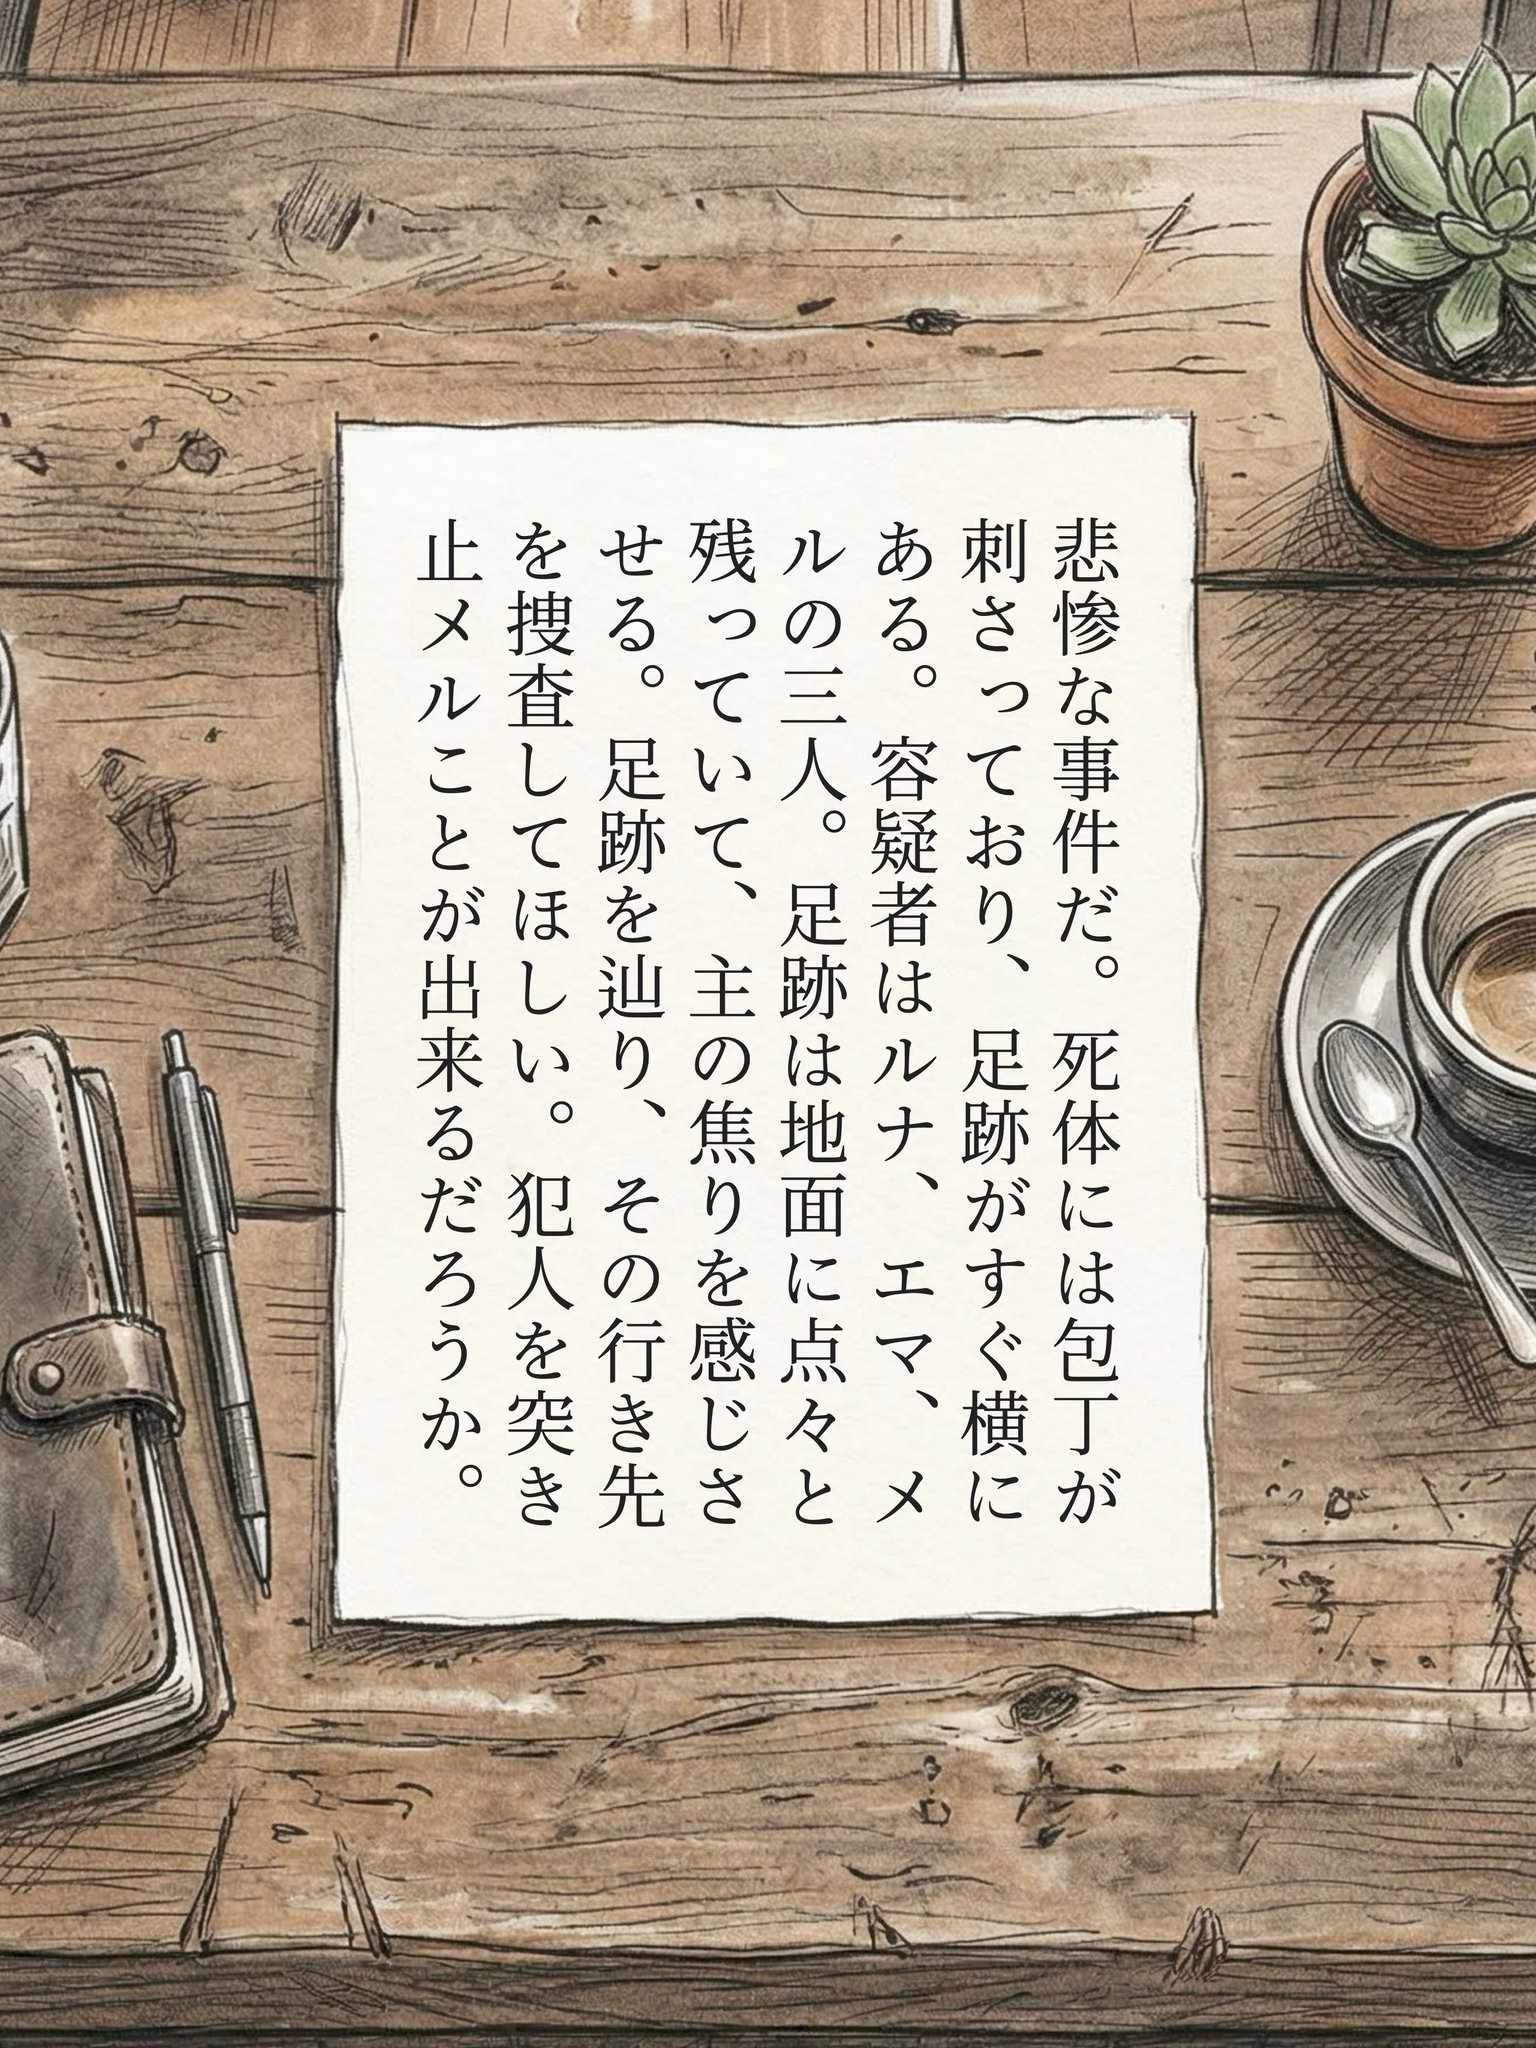 悲惨な事件だ。死体には包丁が
刺さっており、足跡がすぐ横に
ある。容疑者はルナ、エマ、メ
ルの三人。足跡は地面に点々と
残っていて、主の焦りを感じさ
せる。足跡を辿り、その行き先
を捜査してほしい。犯人を突き
止メルことが出来るだろうか。